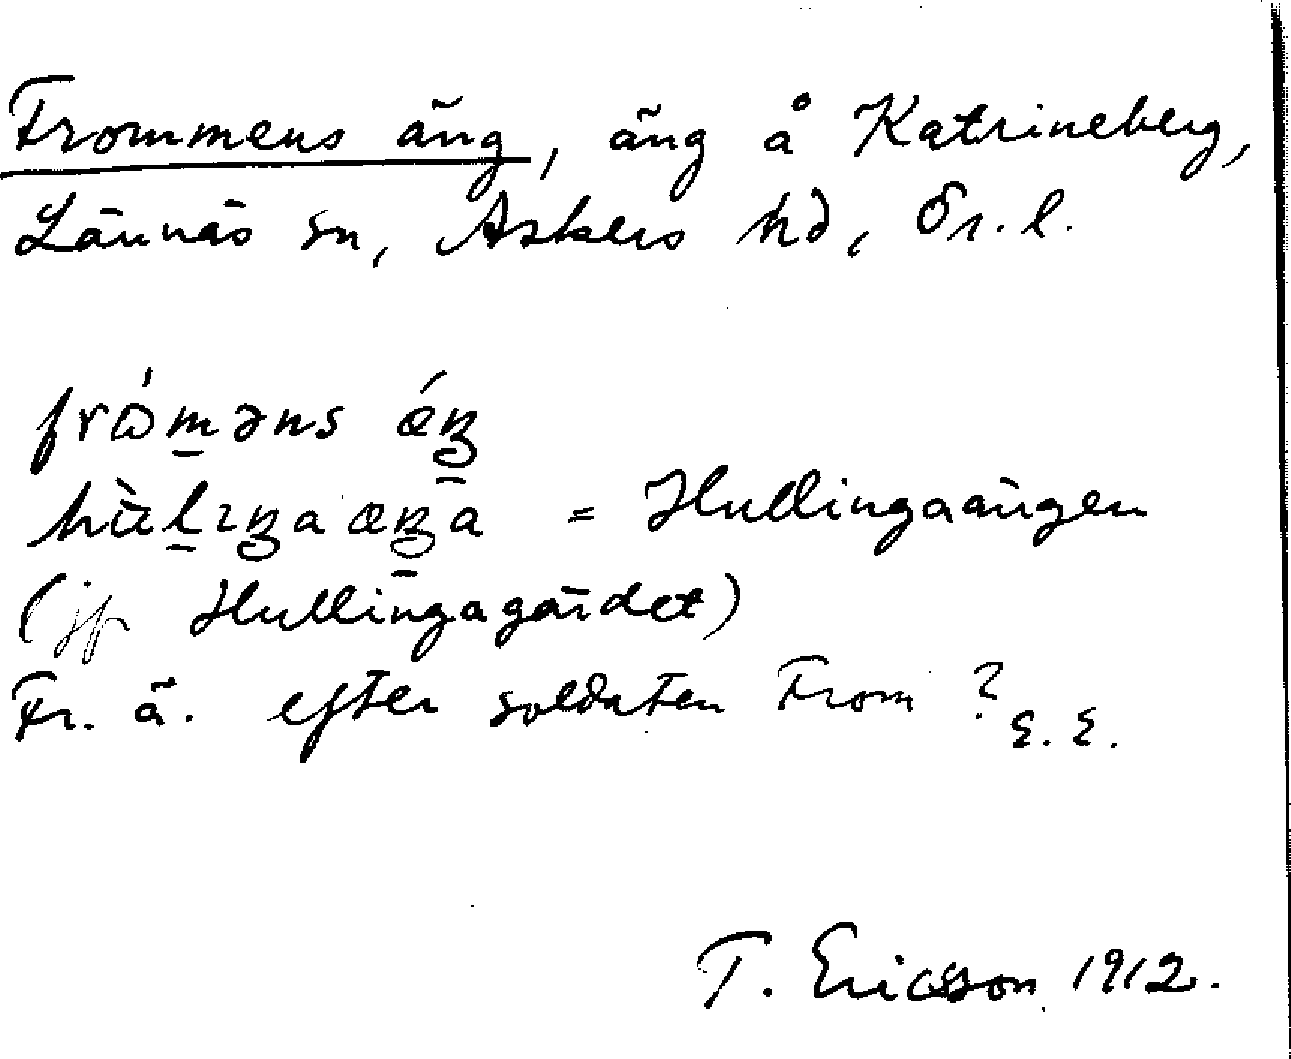 Frommens äng, äng å Katrineberg,
Lännäs sn, Askers hd, Ör. l.
frώm̱əns ǽŋ
hὺḻıŋa æŋa = Hullingaängen
(jfr Hullingagärdet)
Fr. ä. efter soldaten From? E. E.
T. Ericsson 1912.